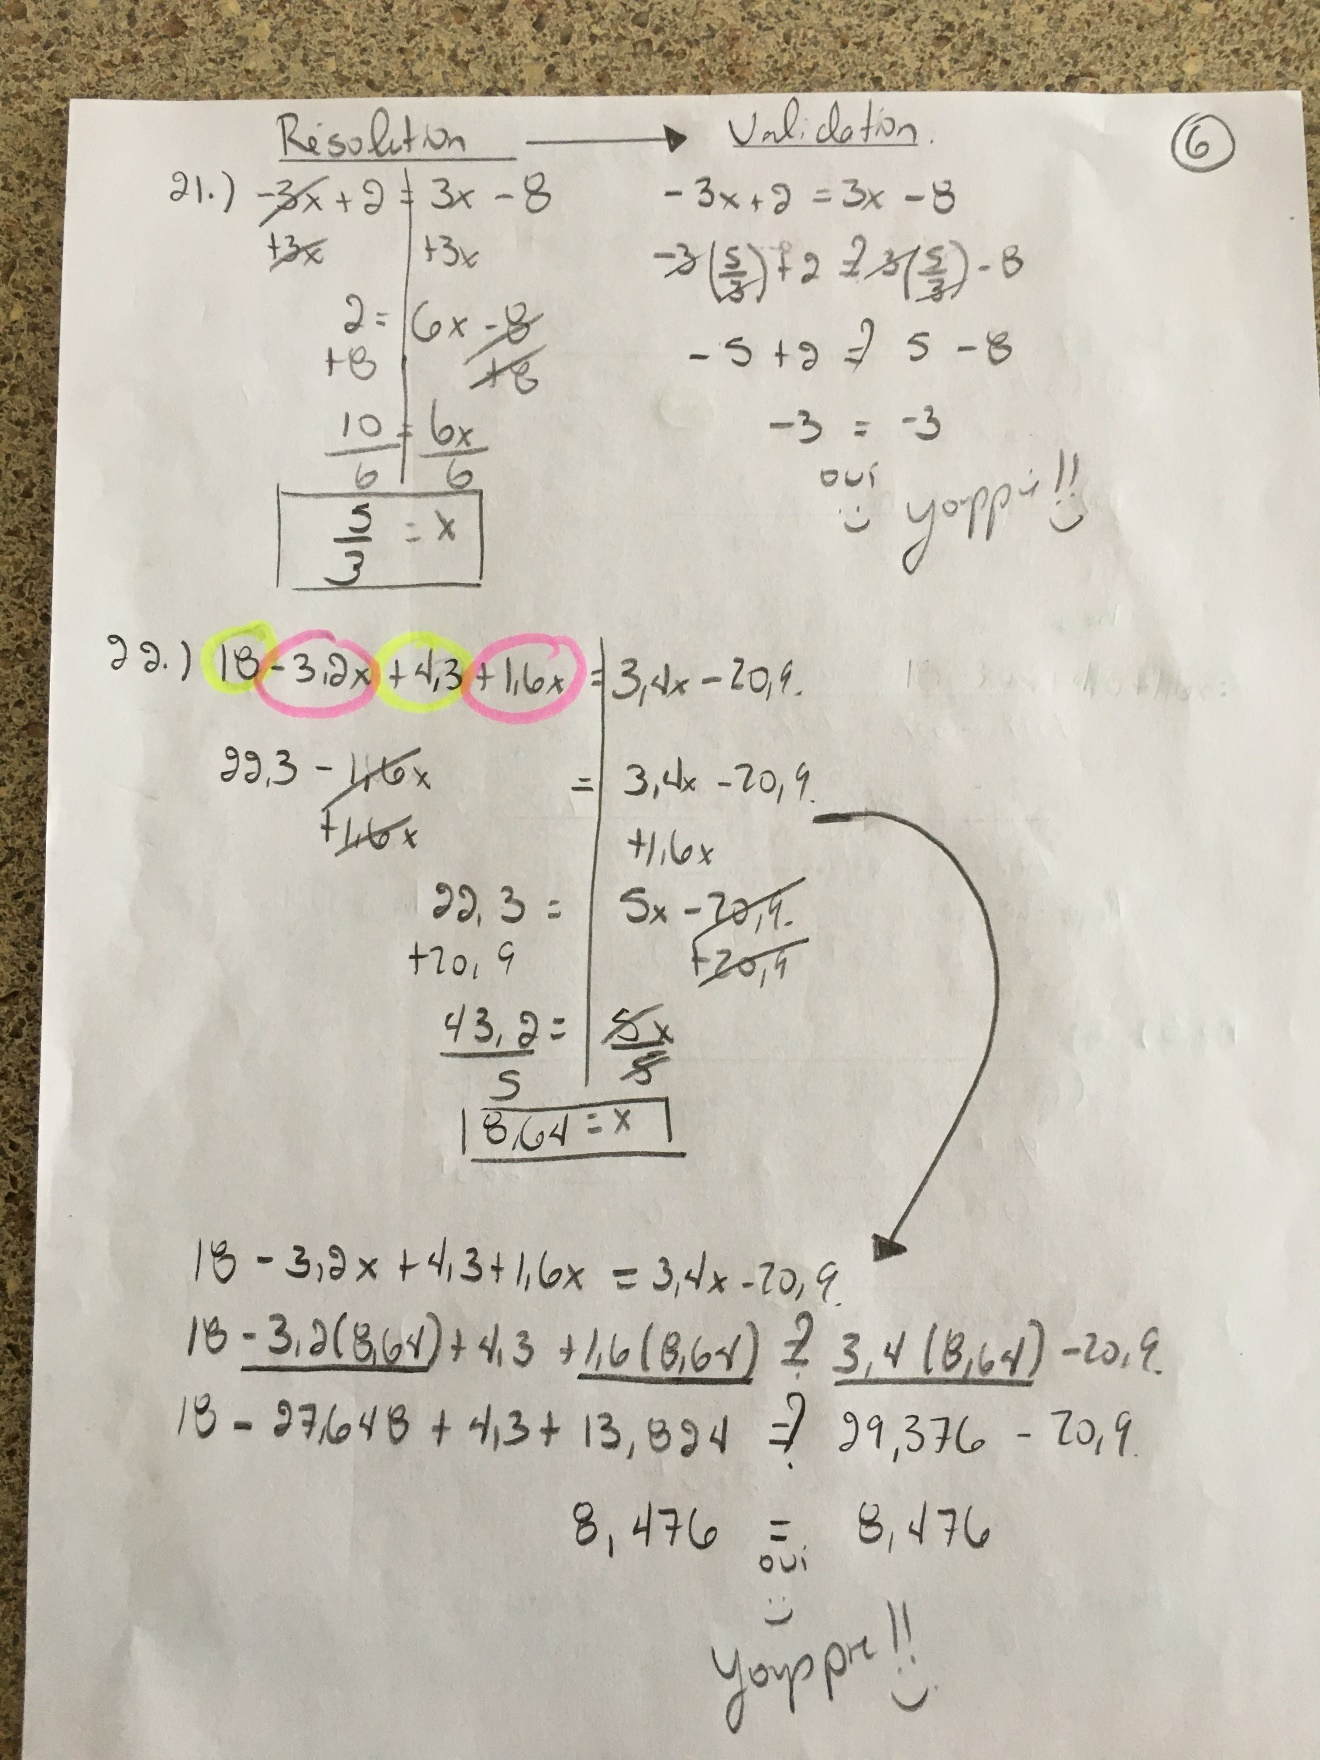 Résolution → Validation. 6
21.) -3x + 2 = 3x - 8
+3x +3x
2 = 6x - 8
+8 +8
10 = 6x
6 6
5/3 = x
-3x + 2 = 3x - 8
-3(5/3) + 2 =? 3(5/3) - 8
-5 + 2 =? 5 - 8
-3 = -3
oui
Youppie!!
22.) 18 - 3,2x + 4,3 + 1,6x = 3,4x - 20,9.
22,3 - 1,6x = 3,4x - 20,9.
+1,6x +1,6x
22,3 = 5x - 20,9.
+20,9 +20,9
43,2 = 5x
5 5
8,64 = x
18 - 3,2x + 4,3 + 1,6x = 3,4x - 20,9.
18 - 3,2(8,64) + 4,3 + 1,6(8,64) =? 3,4(8,64) - 20,9.
18 - 27,648 + 4,3 + 13,824 =? 29,376 - 20,9.
8,476 = 8,476
oui
Youppie!!